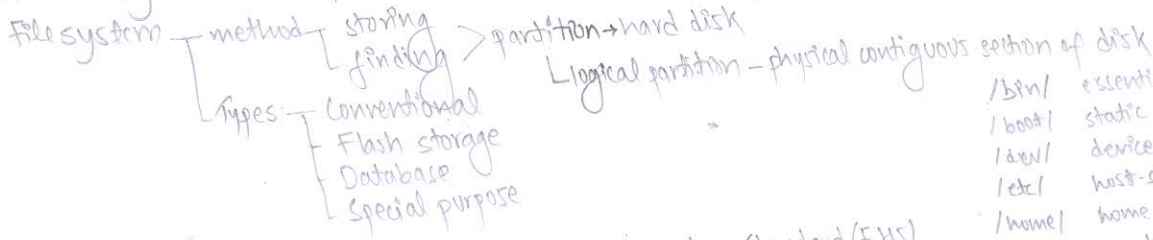 File system method storing
finding > partition → hard disk
Logical partition - physical contiguous section of disk
Types Conventional
Flash storage
Database
Special purpose
/bin/ essenti
/boot/ static
/dev/ device
/etc/ host-s
/home/ home
Standard (FHS)